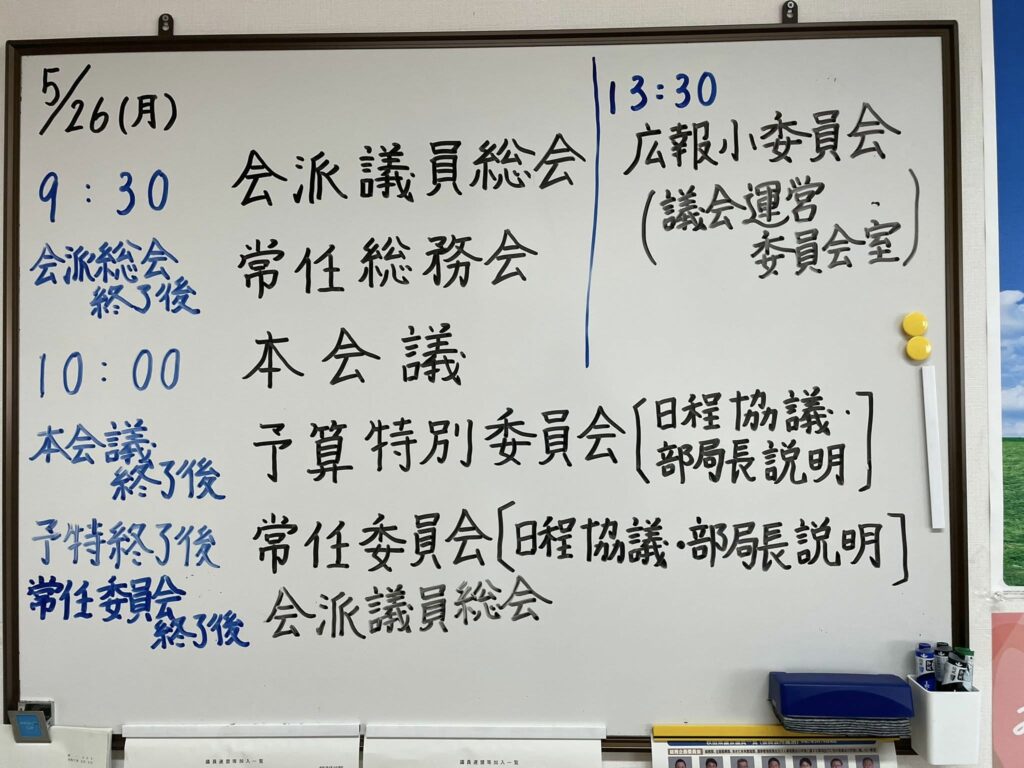 5/26(月)
9:30 会派議員総会
会派総会
終了後 常任総務会
10:00 本会議
本会議
終了後 予算特別委員会[日程協議・
部局長説明]
予特終了後 常任委員会[日程協議・部局長説明]
常任委員会
終了後 会派議員総会
13:30
広報小委員会
(議会運営
委員会室)
議員連盟等加入一覧
議員連盟等加入一覧